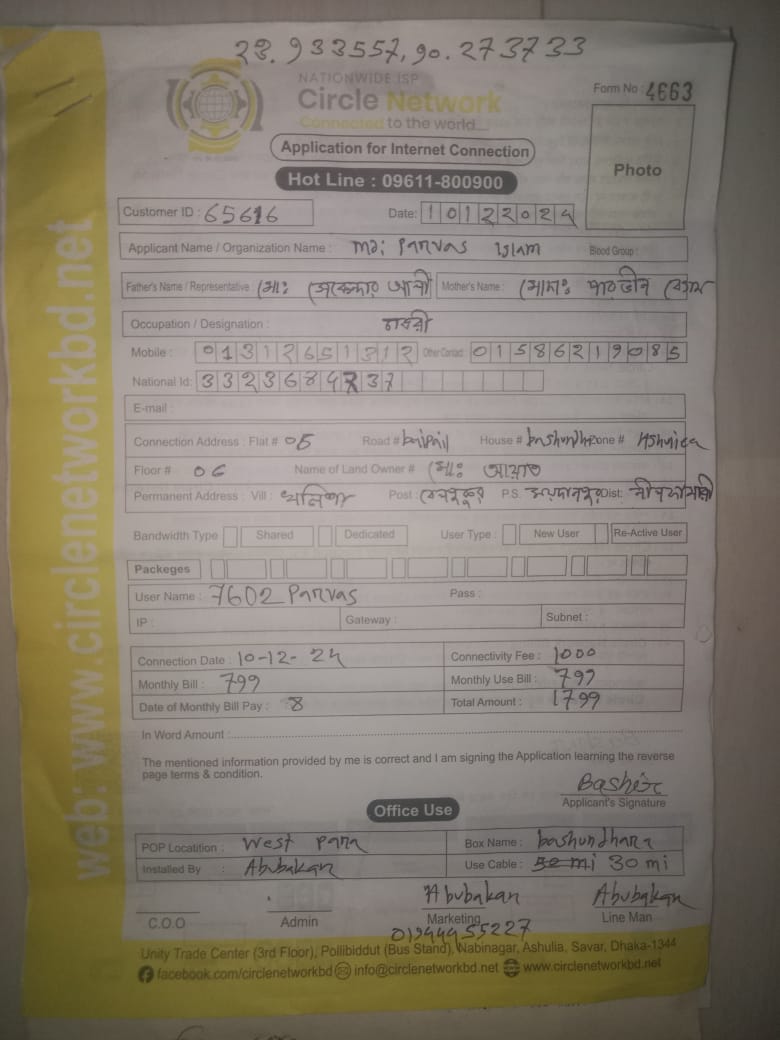 23.933557,90.273733
NATIONWIDE ISP
Circle Network
Connected to the world
Form No : 4663
Application for Internet Connection
Photo
Hot Line : 09611-800900
Customer ID : 65616 Date: 10122024
Applicant Name / Organization Name : MD: Parvas Islam Blood Group :
Father's Name / Representative : মোঃ আলী Mother's Name : মোসাঃ পারভীন বেগম
Occupation / Designation :
Mobile : 01312651312 Other Contact: 01586219085
National Id: 3323684737
E-mail :
Connection Address : Flat # 05 Road # baipail House # bashundhra Zone # Ashulia
Floor # 06 Name of Land Owner # মোঃ
Permanent Address : Vill : Post : P.S. Dist: নীলফামারী
Bandwidth Type Shared Dedicated User Type : New User Re-Active User
Packeges
User Name : 7602 Parvas Pass :
IP : Gateway : Subnet :
Connection Date : 10-12-24 Connectivity Fee : 1000
Monthly Bill : 799 Monthly Use Bill : 799
Date of Monthly Bill Pay : 8 Total Amount : 1799
In Word Amount :
The mentioned information provided by me is correct and I am signing the Application learning the reverse
page terms & condition.
Bashir
Applicant's Signature
Office Use
POP Locatition : West Para Box Name : bashundhara
Installed By : Abubakar Use Cable : 30 mi
Abubakar Abubakar
C.O.O Admin Marketing Line Man
01944955227
Unity Trade Center (3rd Floor), Pollibiddut (Bus Stand), Nabinagar, Ashulia, Savar, Dhaka-1344
facebook.com/circlenetworkbd info@circlenetworkbd.net www.circlenetworkbd.net
web: www.circlenetworkbd.net